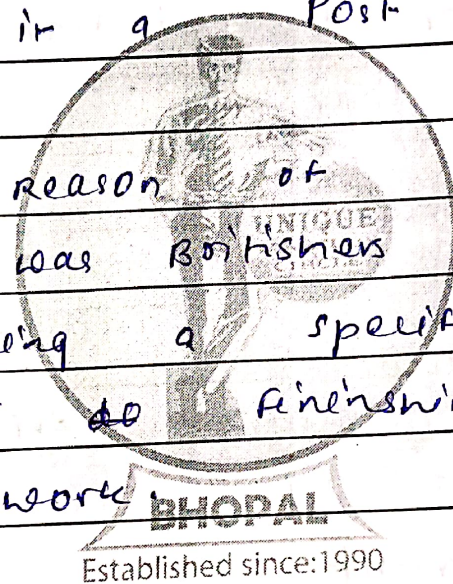 it a Post
Reason of
UNIQUE
was Boitishers
eing a specif
do feninshi
work.
BHOPAL
Established since:1990